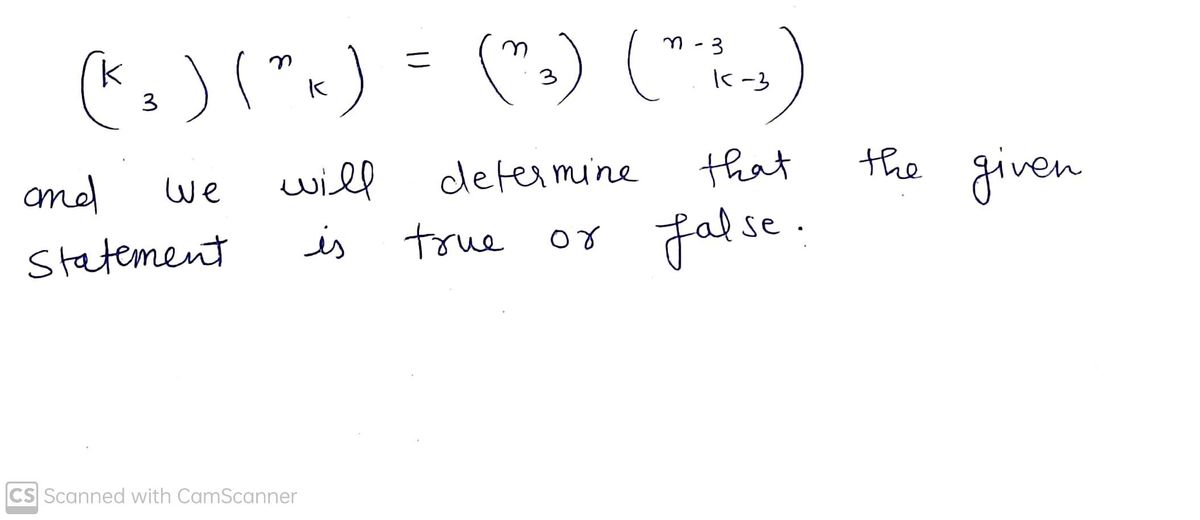 (k 3) (n k) = (n 3) (n-3 k-3)
and we will determine that the given
statement is true or false.
CS Scanned with CamScanner